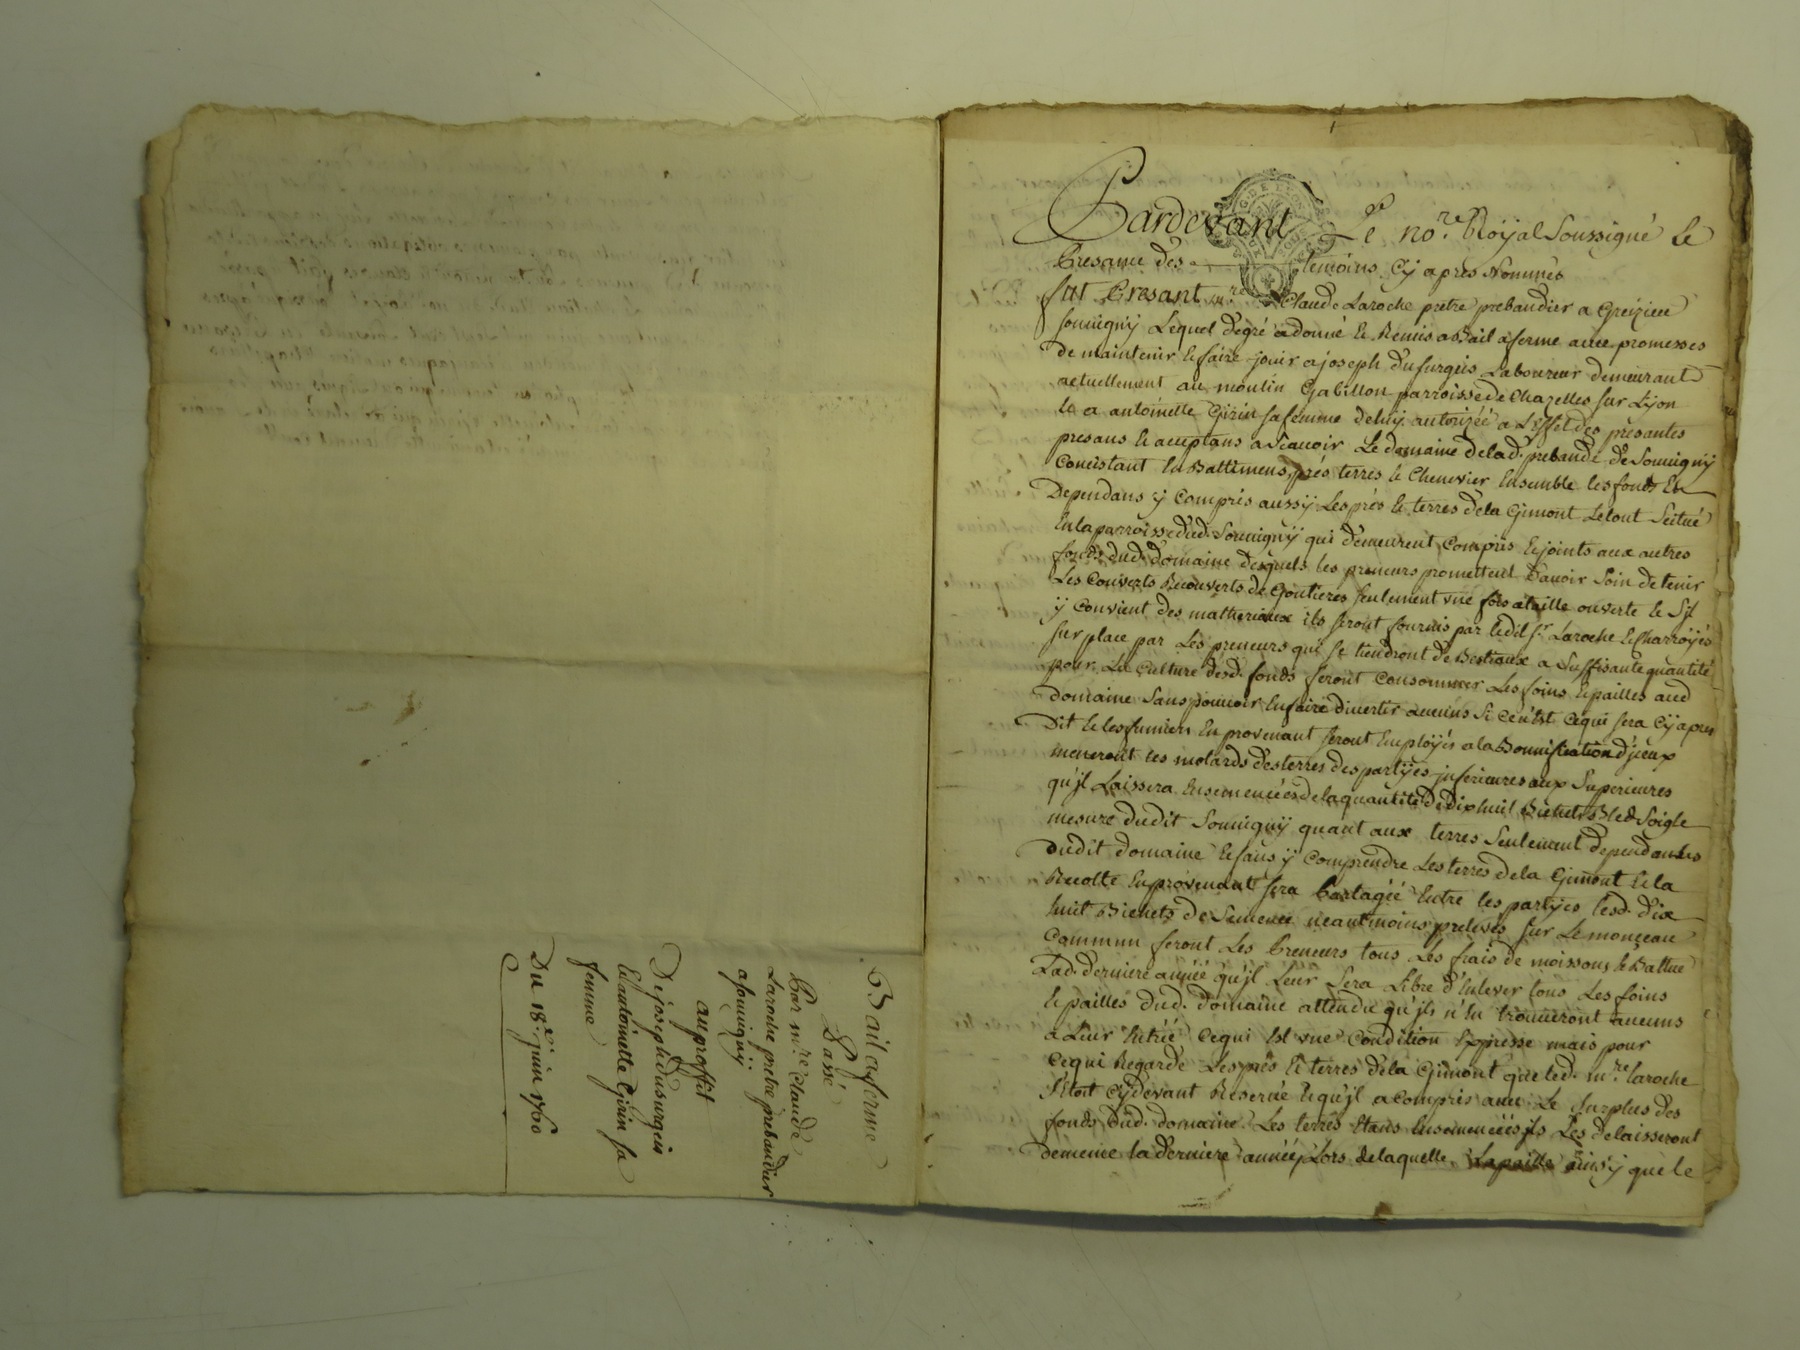 Bail a ferme
Passé
Par m.re Claude
Laroche pretre prebandier
a souuigny.
au proffit
De joseph dufurgeis
Et antoinette Girin sa
femme
Du 18.e juin 1760
Pardevant Le no.re Royal Soussigné Et
Presance des temoins Cy apres Nommés
fut Presant m.re Claude Laroche pretre prebandier a Greizieu
souuigny Lequel de gré a donné Et Remis a Bail a ferme auec promesses
de maintenir Et faire jouir a joseph dufurgeis Laboureur demeurant
actuellement au moulin Gabillon parroisse de Chazelles sur Lyon
Et a antoinette Girin sa femme de luy autorizéé a L'effet des presantes
presans Et acceptans a scauoir Le domaine de lad. prebande de Souuigny
Concistant En Battimens, prés terres Et Chenevier Ensemble les fonds En
Dependans y Compris aussy Les prés Et terres de la Gimont Le tout Scitué
En la parroisse dud. Souuigny qui demeurent Compris Et joints aux autres
fonds dud. domaine desquels les preneurs promettent d'auoir soin de tenir
Les Couverts Recouverts de Goutieres seulement vne fois a taille ouverte Et S'il
y Convient des matheriaux ils seront fournis par ledit S.r Laroche Et Charroyés
sur place par Les preneurs qui se tiendront de Bestiaux a Suffisante quantité
pour La Culture desd. fonds feront Consommer Les foins Et pailles aud.
domaine Sans pouuoir En faire divertir aucuns Si Ce n'Est Ce qui sera Cy apres
Dit Et les fumiers En provenant seront Employés a la Bonnification d'jceux
meneront les molards des terres des partyes jnferieures aux Superieures
qu'jl Laissera Ensemencéés de la quantité de dix huit Bichets Bled Soigle
mesure dudit Souuigny quant aux terres Seulement dependantes
dudit domaine Et sans y Comprendre Les terres de la Gimont Et la
Recolte En provenant sera Partagéé Entre les partyes Lesd. dix
huit Bichets de Semence neantmoins prelevés sur Le monceau
Commun feront Les Preneurs tous Les frais de moissons Et Battue
Lad. derniere annéé qu'jl Leur Sera Libre d'Enlever tous Les foins
Et pailles dud. domaine attendu qu'jls n'En trouueront aucuns
a Leur Entréé Ce qui Est vne Condition Expresse mais pour
Ce qui Regarde Les prés Et terres de la Gimont que led. m.re Laroche
s'étoit Cy devant Reservé Et qu'jl a Compris auec Le surplus des
fonds dud. domaine. Les terres Etans Ensemencéés jls Les delaisseront
de meme la derniere annéé, Lors de laquelle, La paille ainsy que le